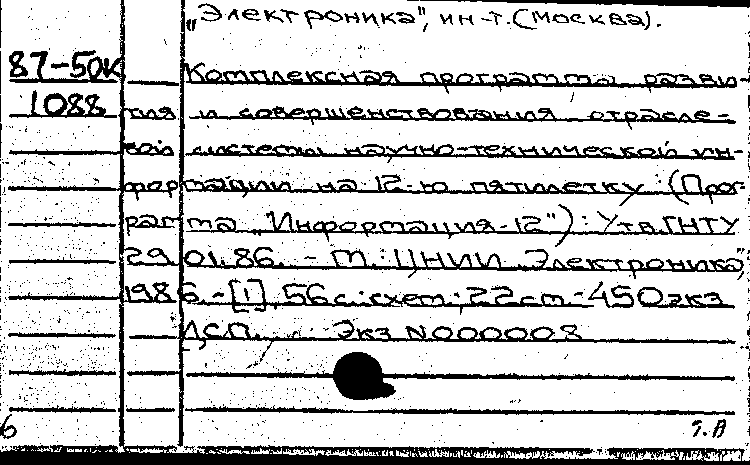 „Электроника", ин-т. (Москва).
87-50К Комплексная программа разви-
1088 тия и совершенствования отрасле-
вой системы научно-технической ин-
формации на 12-ю пятилетку: (Прог-
рамма „Информация-12"): Утв. ГНТУ
29.01.86. - М.: ЦНИИ „Электроника",
1986.-[1], 56с.: схем.; 22см.-450экз
ДСП. Экз N000008
6